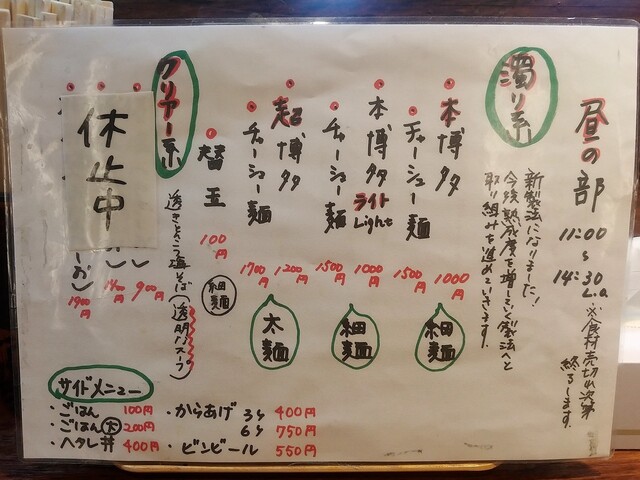 昼の部
11:00
〜
14:30
L.o
※食材売切れ次第
終了します。
濁り系
新製法になりました!
今後熟成度を増していく製法へと
取り組みを進めていきます。
本博多
1000円
チャーシュー麺
1500円
細麺
本博多
ライト
Light
1000円
チャーシュー麺
1500円
細麺
超博多
1200円
チャーシュー麺
1700円
太麺
替玉
100円
細麺
クリアー系
透きとおる塩そば(透明スープ)
休止中
900円
1400円
1900円
サイドメニュー
・ごはん 100円
・ごはん大 200円
・ヘタレ丼 400円
・からあげ 3ケ 400円
6ケ 750円
・ビンビール 550円